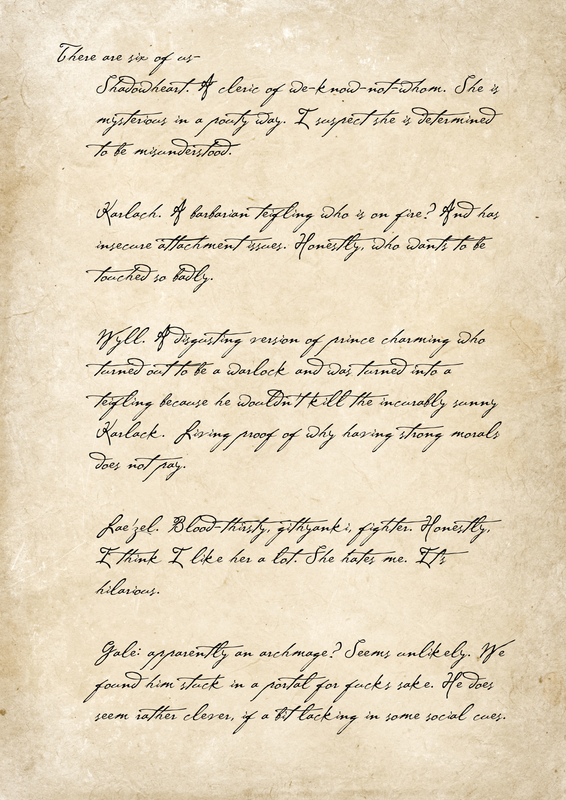 There are six of us-
Shadowheart. A cleric of we-know-not-whom. She is
mysterious in a pouty way. I suspect she is determined
to be misunderstood.
Karlach. A barbarian teifling who is on fire? And has
insecure attachment issues. Honestly, who wants to be
touched so badly.
Wyll. A disgusting version of prince charming who
turned out to be a warlock and was turned into a
teifling because he wouldn't kill the incurably sunny
Karlack. Living proof of why having strong morals
does not pay.
Lae'zel. Blood-thirsty, githyanki, fighter. Honestly,
I think I like her a lot. She hates me. It's
hilarious.
Gale: apparently an archmage? Seems unlikely. We
found him stuck in a portal for fucks sake. He does
seem rather clever, if a bit lacking in some social cues.